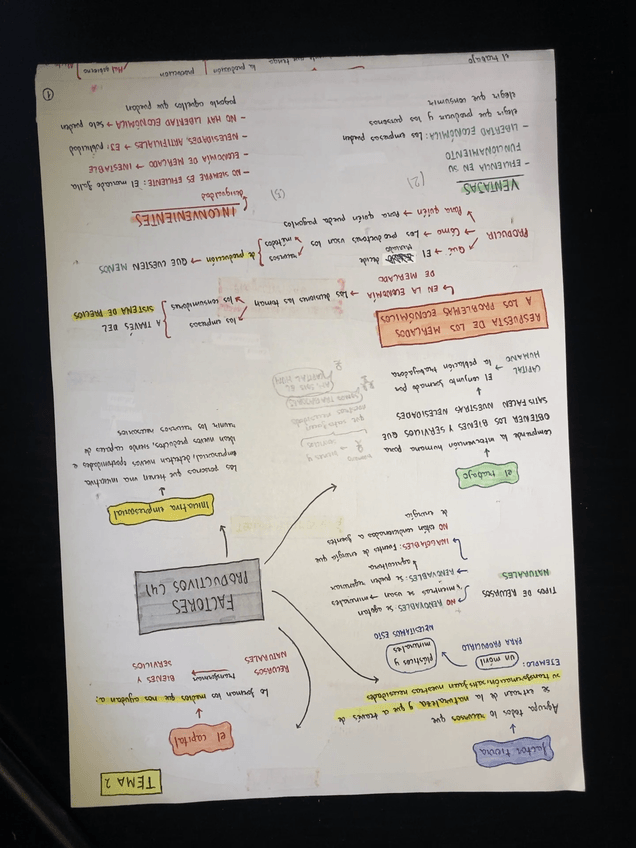 TEMA 2
factor tierra
Agrupa todos los recursos que
se extraen de la naturaleza y que a través de
su transformación, satisfacen nuestras necesidades
EJEMPLO: un móvil
PARA PRODUCIRLO
plásticos y
minerales
NECESITAMOS ESTO
TIPOS DE RECURSOS
NATURALES
NO RENOVABLES: se agotan
mientras se usan → minerales
RENOVABLES: se pueden regenerar
agricultura
INAGOTABLES: Fuentes de energía que
NO están condicionadas a agentes
de energía
el capital
Lo forman los medios que nos ayudan a:
RECURSOS
NATURALES
transformar
BIENES Y
SERVICIOS
FACTORES
PRODUCTIVOS (4)
el trabajo
Comprende la intervención humana para
OBTENER LOS BIENES Y SERVICIOS QUE
SATISFACEN NUESTRAS NECESIDADES
CAPITAL
HUMANO
→ El conjunto formado por
la población trabajadora
iniciativa empresarial
Las personas que tienen una iniciativa
empresarial, detectan nuevas oportunidades e
idean nuevos productos, siendo capaces de
reunir los recursos necesarios
RESPUESTA DE LOS MERCADOS
A LOS PROBLEMAS ECONÓMICOS
EN LA ECONOMÍA
DE MERCADO
→ Las decisiones las toman
las empresas
los consumidores
A TRAVÉS DEL
SISTEMA DE PRECIOS
PRODUCIR
Qué → El
decide
Mercado
Cómo → Los productores usan los
recursos
métodos
de producción → QUE CUESTEN MENOS
Para quién → Para quién pueda pagarlos
VENTAJAS
(2)
- EFICIENCIA EN SU
FUNCIONAMIENTO
- LIBERTAD ECONÓMICA: las empresas pueden
elegir que producir y las personas
elegir que consumir
INCONVENIENTES
(3)
desigualdad
- NO SIEMPRE ES EFICIENTE: El mercado falla
- ECONOMÍA DE MERCADO → INESTABLE
- NECESIDADES ARTIFICIALES → EJ: publicidad
- NO HAY LIBERTAD ECONÓMICA → solo pueden
pagarlo aquellos que puedan
1
el trabajo
la producción
producción